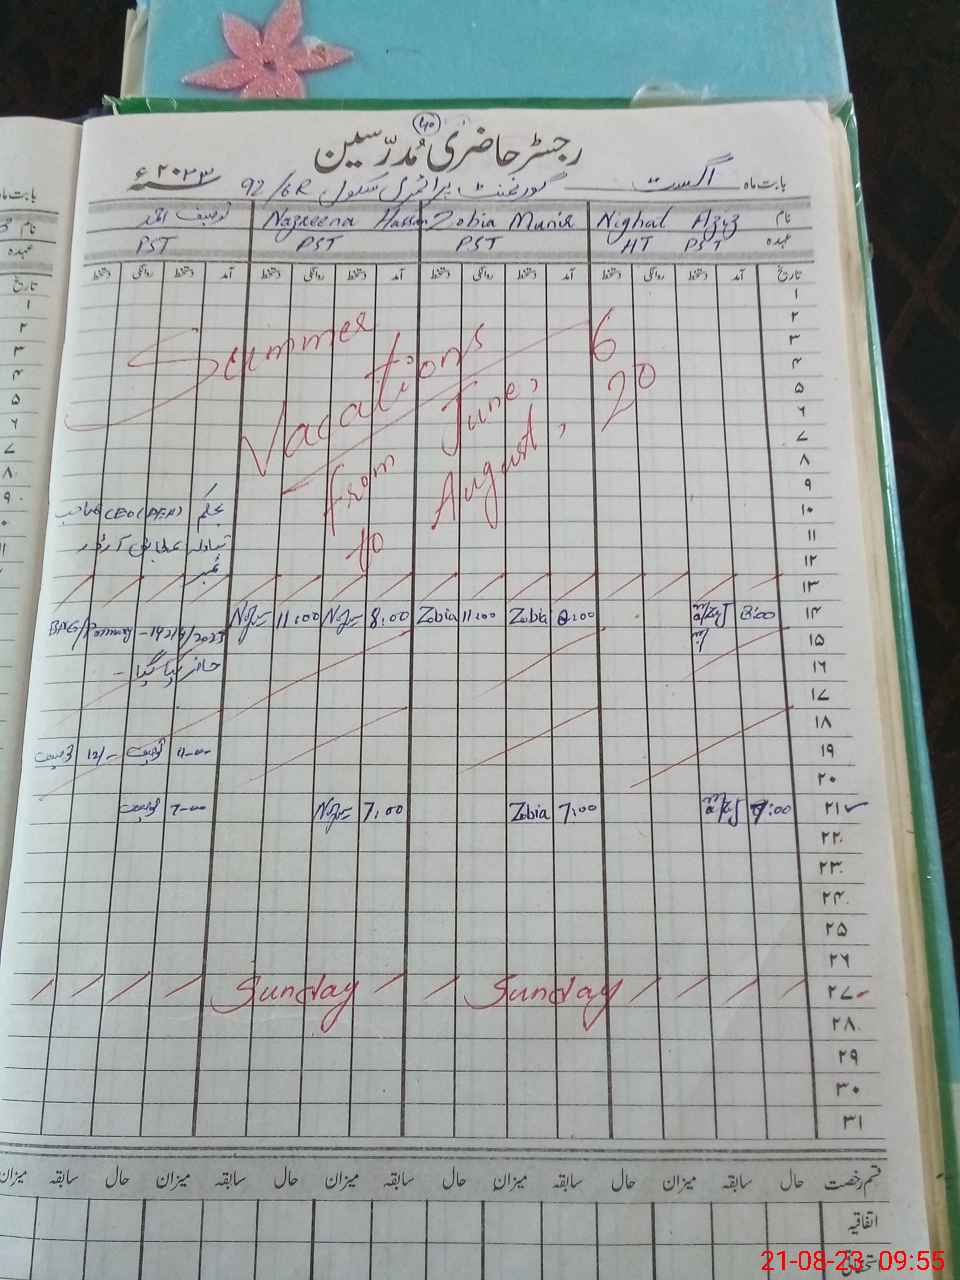 ۴۰
رجسٹر حاضری مُدرّسین
بابت ماہ اگست گورنمنٹ پرائمری سکول 92/6R ۲۰۲۳ء
نام Nighat Aziz Zobia Munir Nazreena Hassan توصیف احمد
عہدہ HT PST PST PST PST
تاریخ آمد دستخط روانگی دستخط آمد دستخط روانگی دستخط آمد دستخط روانگی دستخط آمد دستخط روانگی دستخط
۱
۲
۳
۴
۵
۶
۷
۸
۹
۱۰
۱۱
۱۲
۱۳
Summer
Vacations
from June, 6
to August, 20
بحکم CEO (DEA) صاحب
تبادلہ آرڈر
نمبر
۱۴ 8:00 8:00 Zobia 11:00 Zobia 8:00 11:00
14/2/2023
۱۵
حاضر ہو گیا -
۱۶
۱۷
۱۸
۱۹ 11-00 توصیف 12/- توصیف
۲۰
۲۱ 7:00 7:00 Zobia 7:00 7-00 توصیف
۲۲
۲۳
۲۴
۲۵
۲۶
۲۷ Sunday Sunday
۲۸
۲۹
۳۰
۳۱
قسم رخصت حال سابقہ میزان حال سابقہ میزان حال سابقہ میزان حال سابقہ میزان
اتفاقیہ
استحقاقی
21-08-23 09:55
بابت ماہ
نام
عہدہ
تاریخ
۱
۲
۳
۴
۵
۶
۷
۸
۹